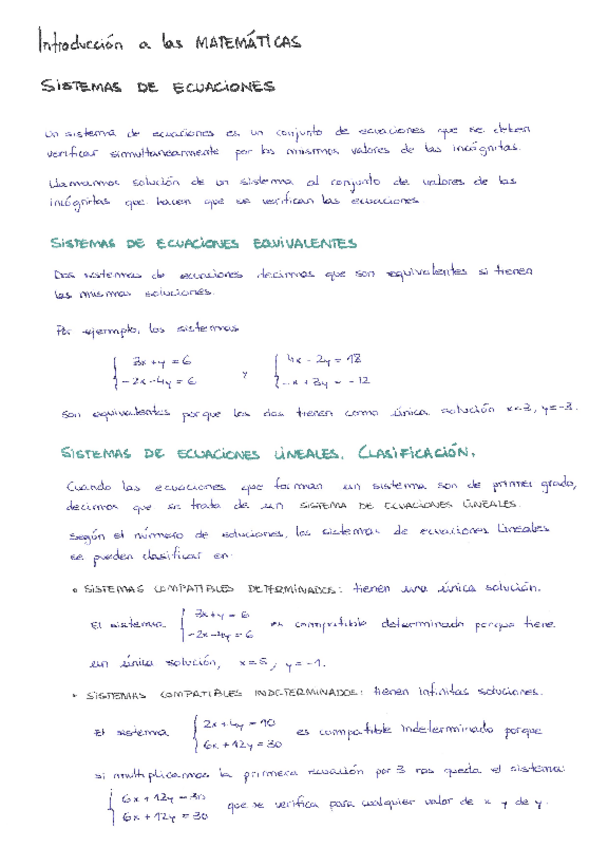 Introducción a las MATEMÁTICAS
SISTEMAS DE ECUACIONES
Un sistema de ecuaciones es un conjunto de ecuaciones que se deben
verificar simultáneamente por los mismos valores de las incógnitas.
Llamamos solución de un sistema al conjunto de valores de las
incógnitas que hacen que se verifican las ecuaciones
SISTEMAS DE ECUACIONES EQUIVALENTES
Dos sistemas de ecuaciones decimos que son equivalentes si tienen
las mismas soluciones.
Por ejemplo, los sistemas
{ 3x + y = 6 y { 4x - 2y = 18
-2x - 4y = 6 x + 3y = -12
son equivalentes porque los dos tienen como única solución x=3, y=-3.
SISTEMAS DE ECUACIONES LINEALES. CLASIFICACIÓN.
Cuando las ecuaciones que forman un sistema son de primer grado,
decimos que se trata de un SISTEMA DE ECUACIONES LINEALES.
Según el número de soluciones, los sistemas de ecuaciones lineales
se pueden clasificar en:
• SISTEMAS COMPATIBLES DETERMINADOS: tienen una única solución.
El sistema { 3x + y = 6 es compatible determinado porque tiene
-2x - 4y = 6
una única solución, x=5, y=-1.
• SISTEMAS COMPATIBLES INDETERMINADOS: tienen infinitas soluciones.
El sistema { 2x + 4y = 10 es compatible indeterminado porque
6x + 12y = 30
si multiplicamos la primera ecuación por 3 nos queda el sistema
{ 6x + 12y = 30 que se verifica para cualquier valor de x y de y.
6x + 12y = 30